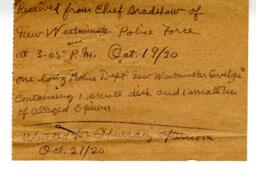 Received from Chief Bradshaw of
New Westminster Police Force
at 3-05 P.M. Oct. 19/20
one long Police Dept "New Westminster Envelope"
containing 1 small dish and 1 small tin
of Alleged Opium.
for Thursday afternoon
Oct. 21/20